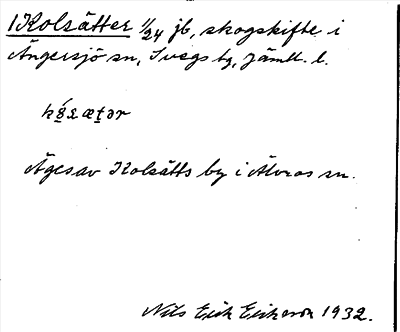 Kolsätter 1/24 jb, skogskifte i
Ängersjö sn, Svegs tg, Jämtl. l.
Äges av Kolsätts by i Älvros sn.
Nils Erik Erikson 1932.